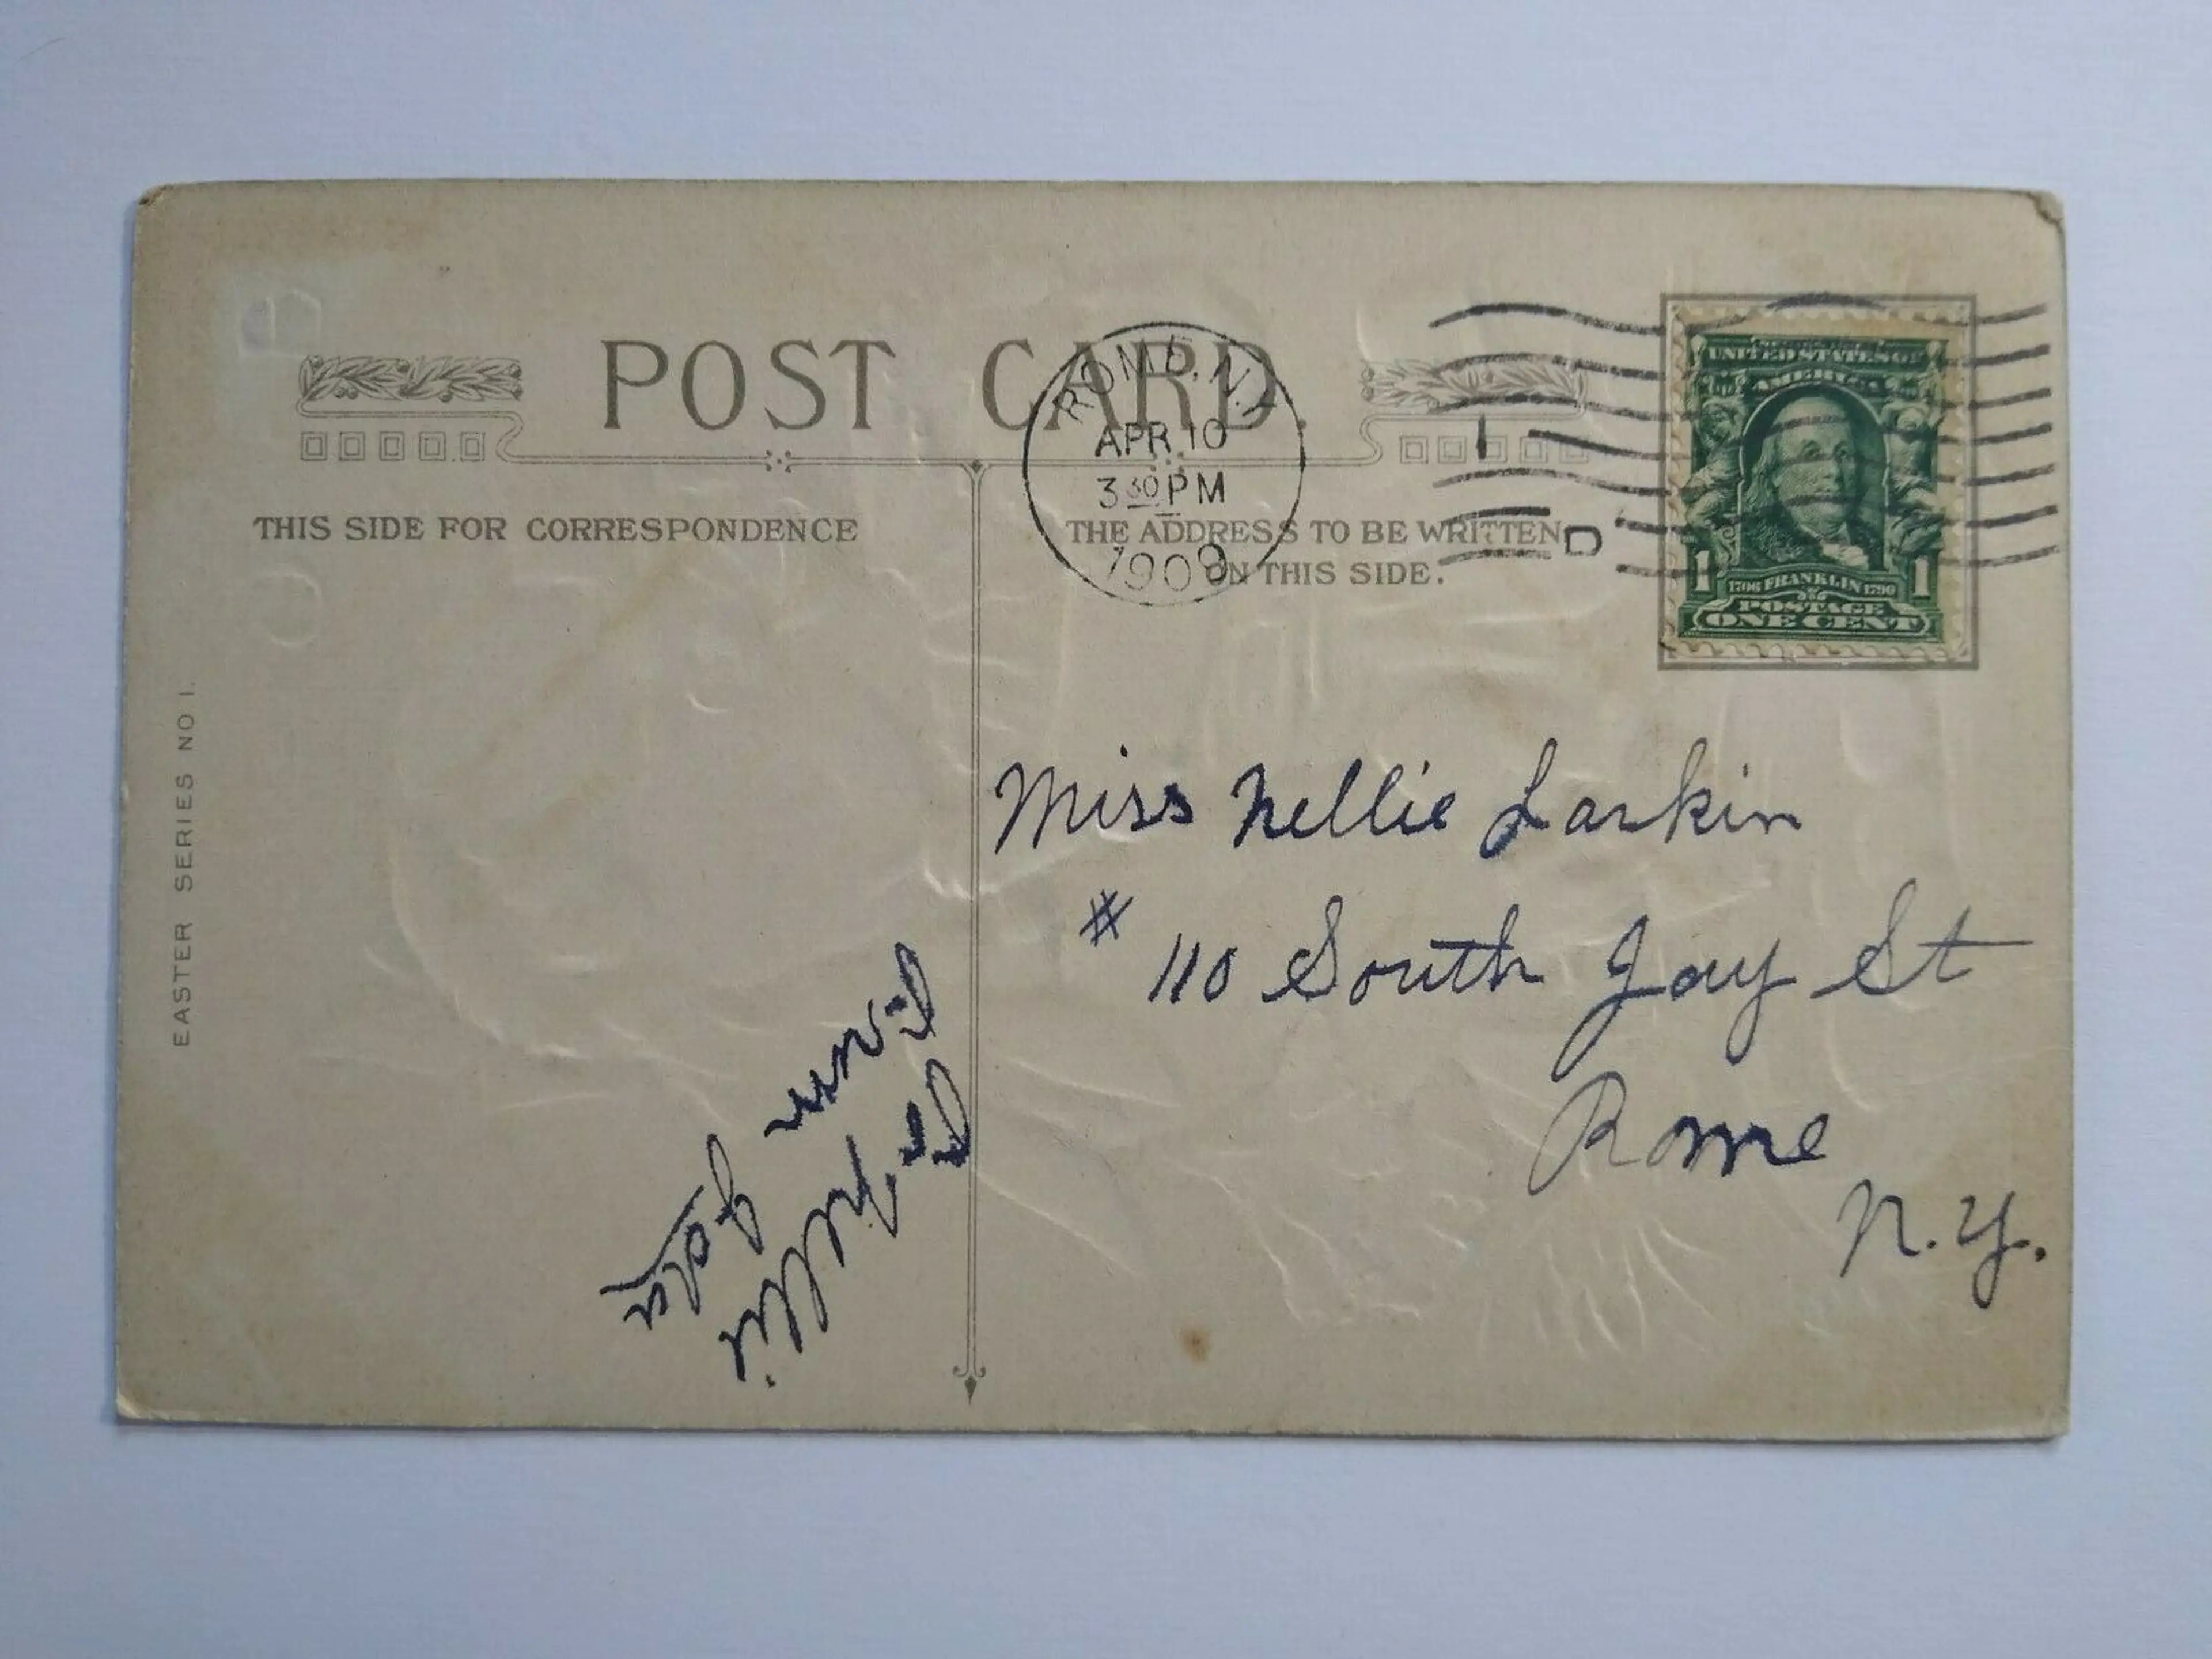 POST CARD.
ROME, N.Y.
APR 10
3 30 PM
1909
1
D
UNITED STATES OF
AMERICA
1
1
1706 FRANKLIN 1790
POSTAGE
ONE CENT
THIS SIDE FOR CORRESPONDENCE
THE ADDRESS TO BE WRITTEN
ON THIS SIDE.
EASTER SERIES NO 1.
Miss Nellie Larkin
# 110 South Jay St
Rome
N.Y.
To Nellie
From